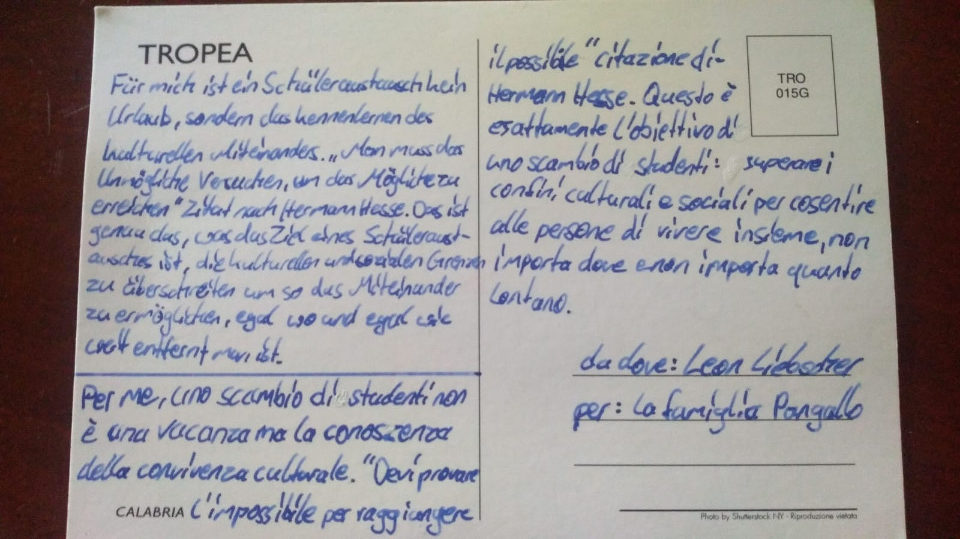 TROPEA
Für mich ist ein Schüleraustausch kein
Urlaub, sondern das kennenlernen des
kulturellen Miteinanders. „Man muss das
Unmögliche Versuchen, um das Mögliche zu
erreichen" Zitat nach Hermann Hesse. Das ist
genau das, was das Ziel eines Schüleraust-
ausches ist, die kulturellen und sozialen Grenzen
zu überschreiten um so das Miteinander
zu ermöglichen, egal wo und egal wie
weit entfernt man ist.
Per me, uno scambio di studenti non
è una vacanza ma la conoszenza
della convivenza culturale. "Devi provare
CALABRIA l'impossibile per raggiungere
il possibile" citazione di
Hermann Hesse. Questo è
esattamente l'obiettivo di
uno scambio di studenti: superare i
confini culturali e sociali per cosentire
alle persone di vivere insieme, non
importa dove e non importa quanto
lontano.
TRO
015G
da dove: Leon
per: la famiglia Pangallo
Photo by Shutterstock NY - Riproduzione vietata